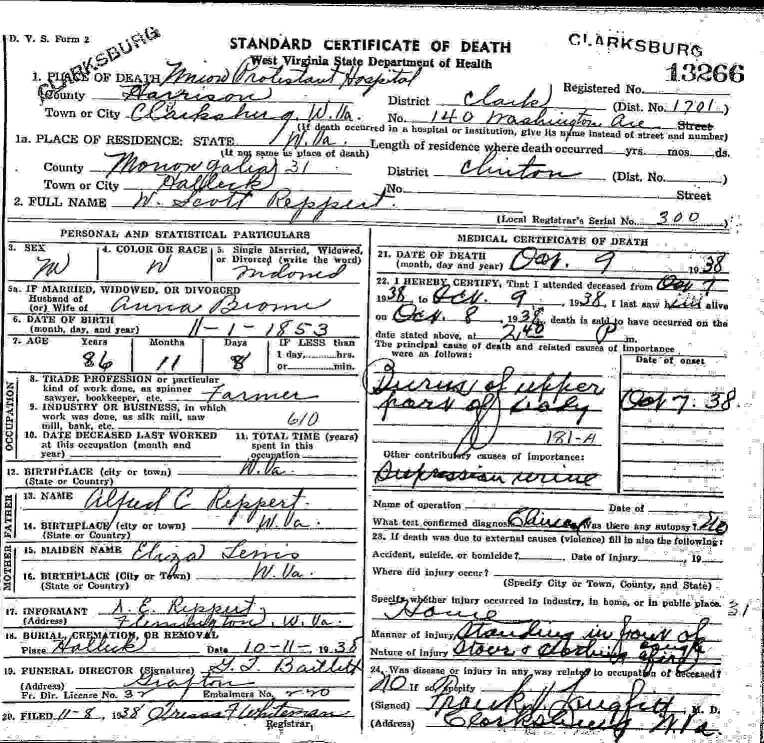 D. V. S. Form 2
CLARKSBURG
STANDARD CERTIFICATE OF DEATH
CLARKSBURG
West Virginia State Department of Health
13266
1. PLACE OF DEATH Union Protestant Hospital
Registered No.
County Harrison District Clark (Dist. No. 1701)
Town or City Clarksburg, W. Va. No. 140 Washington Ave Street
(If death occurred in a hospital or institution, give its name instead of street and number)
1a. PLACE OF RESIDENCE: STATE W. Va. Length of residence where death occurred yrs. mos. ds.
(If not same as place of death)
County Monongalia 31 District Clinton (Dist. No.
Town or City Halleck No. Street
2. FULL NAME W. Scott Reppert.
(Local Registrar's Serial No. 300)
PERSONAL AND STATISTICAL PARTICULARS
3. SEX M
4. COLOR OR RACE W
5. Single Married, Widowed, or Divorced (write the word) Widowed
5a. IF MARRIED, WIDOWED, OR DIVORCED
Husband of
(or) Wife of Anna
6. DATE OF BIRTH
(month, day, and year) 11-1-1853
7. AGE Years Months Days IF LESS than
1 day, hrs.
or min.
86 11 8
OCCUPATION
8. TRADE PROFESSION or particular
kind of work done, as spinner
sawyer, bookkeeper, etc. Farmer
9. INDUSTRY OR BUSINESS, in which
work was done, as silk mill, saw
mill, bank, etc. 610
10. DATE DECEASED LAST WORKED
at this occupation (month and
year)
11. TOTAL TIME (years)
spent in this
occupation
12. BIRTHPLACE (city or town) W. Va.
(State or Country)
FATHER
13. NAME Alfred C Reppert.
14. BIRTHPLACE (city or town) W. Va.
(State or Country)
MOTHER
15. MAIDEN NAME Eliza
16. BIRTHPLACE (City or Town) W. Va.
(State or Country)
17. INFORMANT A. E. Reppert
(Address) Flemington, W. Va.
18. BURIAL, CREMATION, OR REMOVAL
Place Halleck Date 10-11-1938
19. FUNERAL DIRECTOR (Signature) Bartlett
(Address) Grafton
Fr. Dir. Licence No. 32 Embalmers No. 220
20. FILED 11-8, 1938 Whiteman
Registrar.
MEDICAL CERTIFICATE OF DEATH
21. DATE OF DEATH
(month, day and year) Oct. 9 1938
22. I HEREBY CERTIFY, That I attended deceased from Oct 7
1938 to Oct. 9, 1938, I last saw him alive
on Oct. 8 1938, death is said to have occurred on the
date stated above, at 2:40 P m.
The principal cause of death and related causes of importance
were as follows:
Date of onset
Burns of upper
part of body
Oct 7. 38.
181-A
Other contributory causes of importance:
Supression urine
Name of operation Date of
What test confirmed diagnosis Clinical Was there any autopsy? No
23. If death was due to external causes (violence) fill in also the following:
Accident, suicide, or homicide? Date of injury, 19
Where did injury occur?
(Specify City or Town, County, and State)
Specify whether injury occurred in industry, in home, or in public place. 31
Home
Manner of injury Standing in front of
Nature of injury Stove & clothing caught fire
24. Was disease or injury in any way related to occupation of deceased?
NO If so, specify
(Signed) M. D.
(Address) Clarksburg W Va